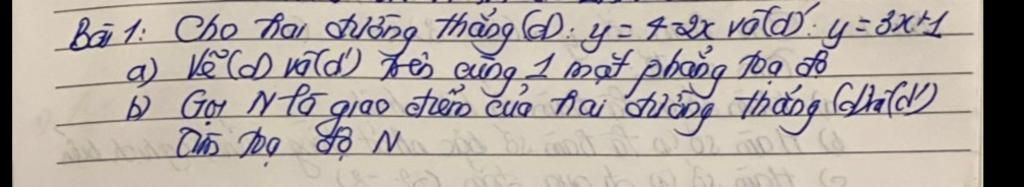 Bài 1: Cho hai đường thẳng (d): y = 4-2x và (d'): y = 3x+1
a) Vẽ (d) và (d') trên cùng 1 mặt phẳng tọa độ
b) Gọi N là giao điểm của hai đường thẳng (d) và (d')
Tìm tọa độ N